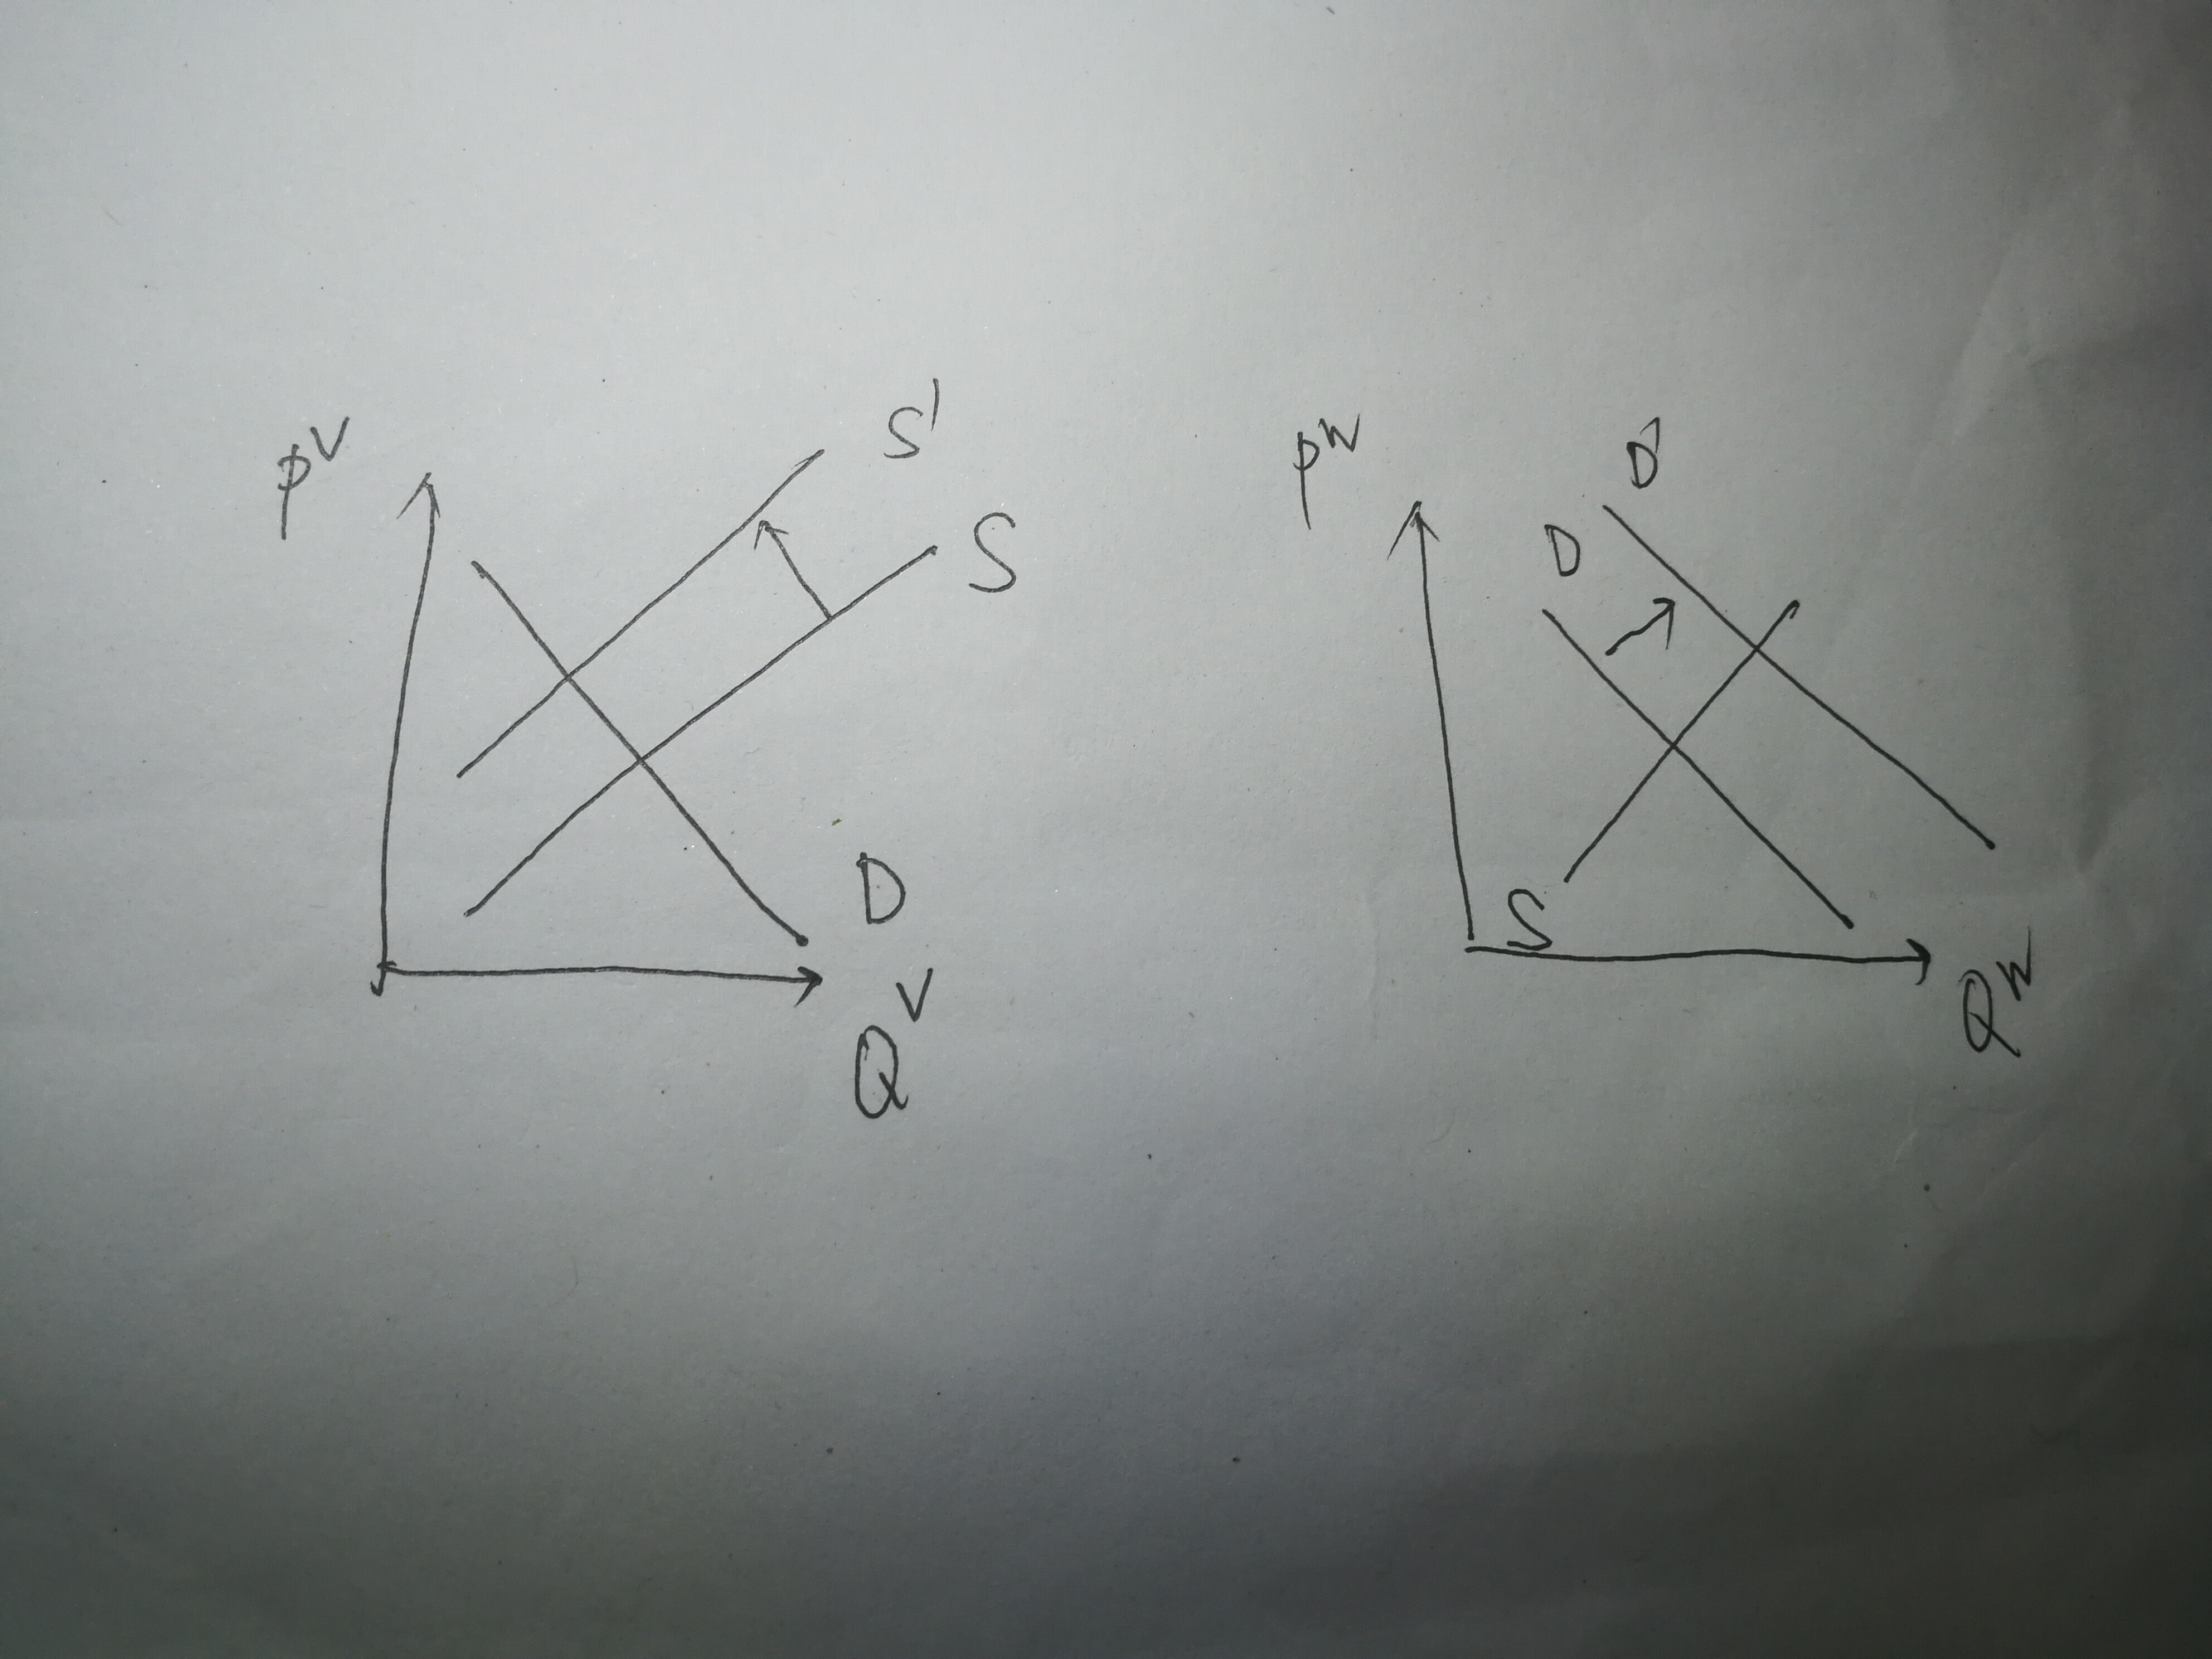 P^V
S'
S
D
Q^V
P^W
D'
D
S
Q^W